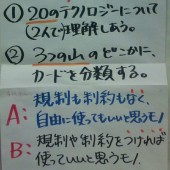 ① 20のテクノロジーについて
(2人で)理解しあう。
② 3つの山のどこかに、
カードを分類する。
A: 規制も制約もなく、
自由に使ってもいいと思うモノ
B: 規制や制約をつければ
使っていいと思うモノ